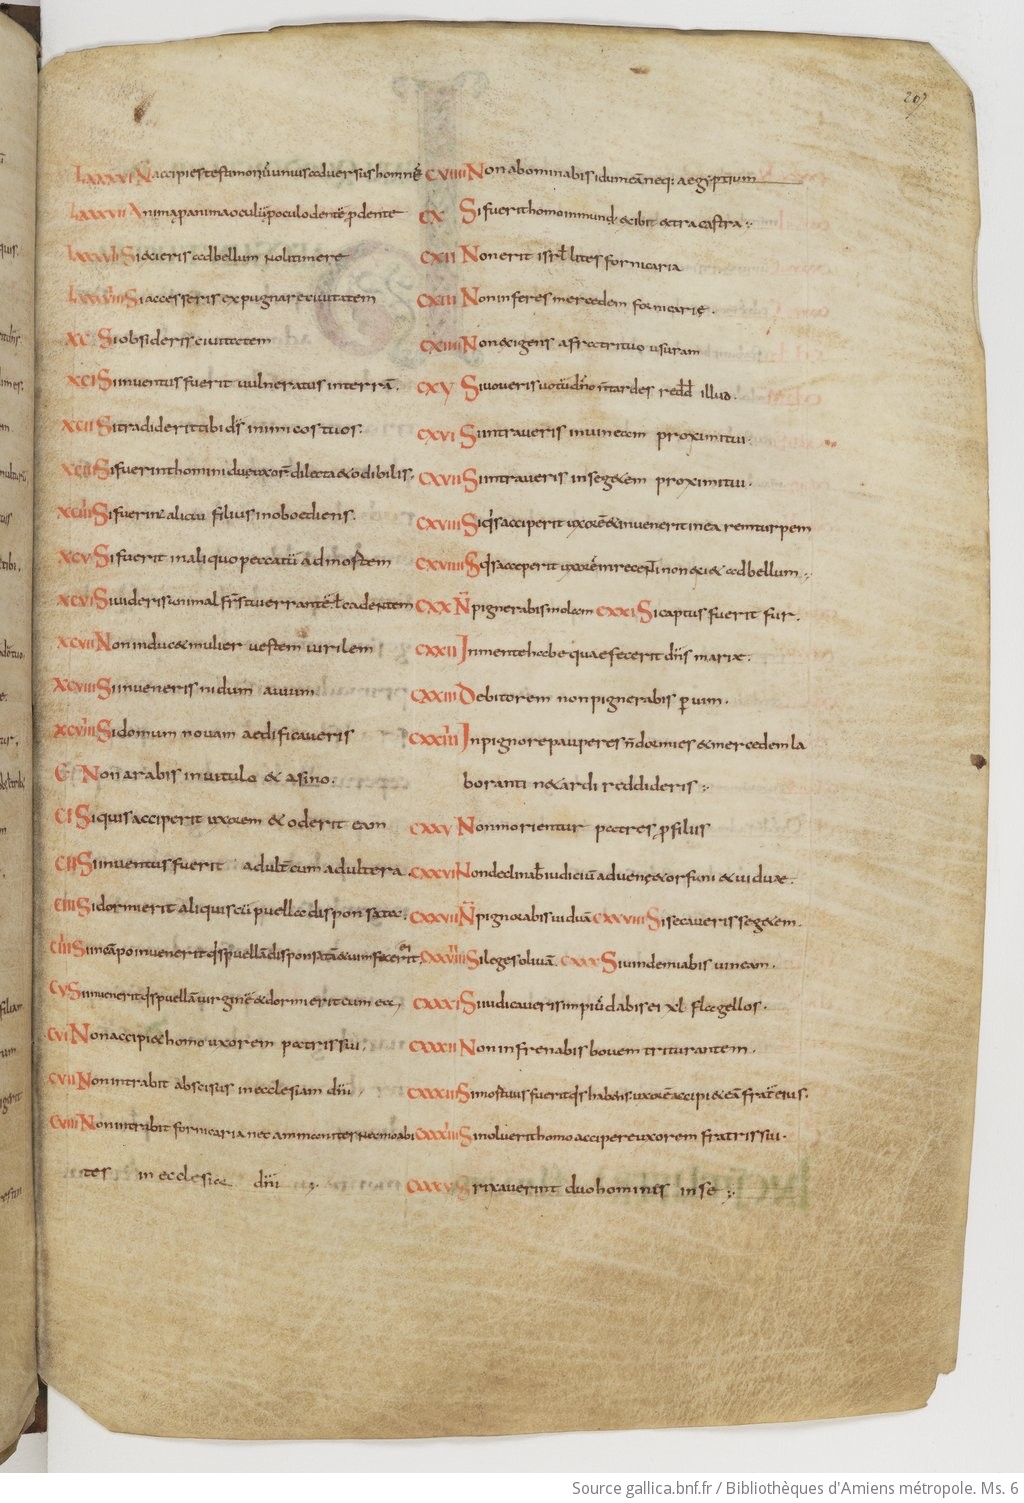 207
LXXXVI Naccipies testimoniū unius adversus hominē
LXXXVII Animā p anima oculū p oculo dentē p dente
LXXXVIII Si exieris ad bellum noli timere
LXXXVIIII Si accesseris expugnare civitatem
XC Si obsideris civitatem
XCI Si inventus fuerit vulneratus in terrā.
XCII Si tradiderit tibi dš inimicos tuos.
XCIII Si fuerint homini duę uxor̄ dilecta & odibilis.
XCIIII Si fuerit alicui filius inoboediens.
XCV Si fuerit in aliquo peccatū ad mortem
XCVI Si videris animal frīs tui errantē ł cadentem
XCVII Non induet mulier vestem virilem
XCVIII Si inveneris nidum avium
XCVIIII Si domum novam aedificaveris
C Non arabis in vitulo & asino.
CI Si quis acciperit uxorem & oderit eam
CII Si inventus fuerit adulť cum adultera.
CIII Si dormierit aliquis cū puella disponsata.
CIIII Si in cāpo invenerit qis puellā disponsatā & vim fecerit
CV Si invenerit qis puellā virginē & dormierit cum ea,
CVI Non accipi& homo uxorem patris sui.
CVII Non intrabit abscisus in ecclesiam dni
CVIII Non intrabit fornicaria nec ammonites nec moabi
tes in ecclesia dni
CVIIII Non abominabis idumeā neq: aegyptium
CX Si fuerit homo inmund; exibit extra castra
CXII Non erit isrl lites fornicaria
CXIII Non inferes mercedem fornicarię.
CXIIII Non exigens a fratri tuo usuram
CXV Si voveris votū dño ñ tardes redd illud.
CXVI Si intraveris in vineam proximi tui.
CXVII Si intraveris in seg&em proximi tui.
CXVIII Si qis acciperit uxorē & invenerit in ea rem turpem
CXVIIII Si qis acceperit uxorē in recenti non exi& ad bellum
CXX Ñ pignerabis molam CXXI Si captus fuerit fur.
CXXII In mente habe quae fecerit dns mariae.
CXXIII Debitorem non pignerabis pvim.
CXXIIII In pignore pauperes ñ dormies & mercedem la
boranti n& ardi reddideris
CXXV Non morientur patres p filius
CXXVI Non declinab iudiciū advenę & orfani & viduae.
CXXVII Ñ pignorabis viduā CXXVIII Si secaveris seg&em.
CXXVIIII Si leges olivā. CXXX Si vindemiabis vineam.
CXXXI Si iudicaveris impiū dabis ei xl flagellos.
CXXXII Non infrenabis bovem triturantem.
CXXXIII Si mortuus fuerit qis habens uxorē accipi& eā frater eius.
CXXXIIII Si noluerit homo accipere uxorem fratris sui.
CXXXV Si rixaverint duo hominis in se
Source gallica.bnf.fr / Bibliothèques d'Amiens métropole. Ms. 6